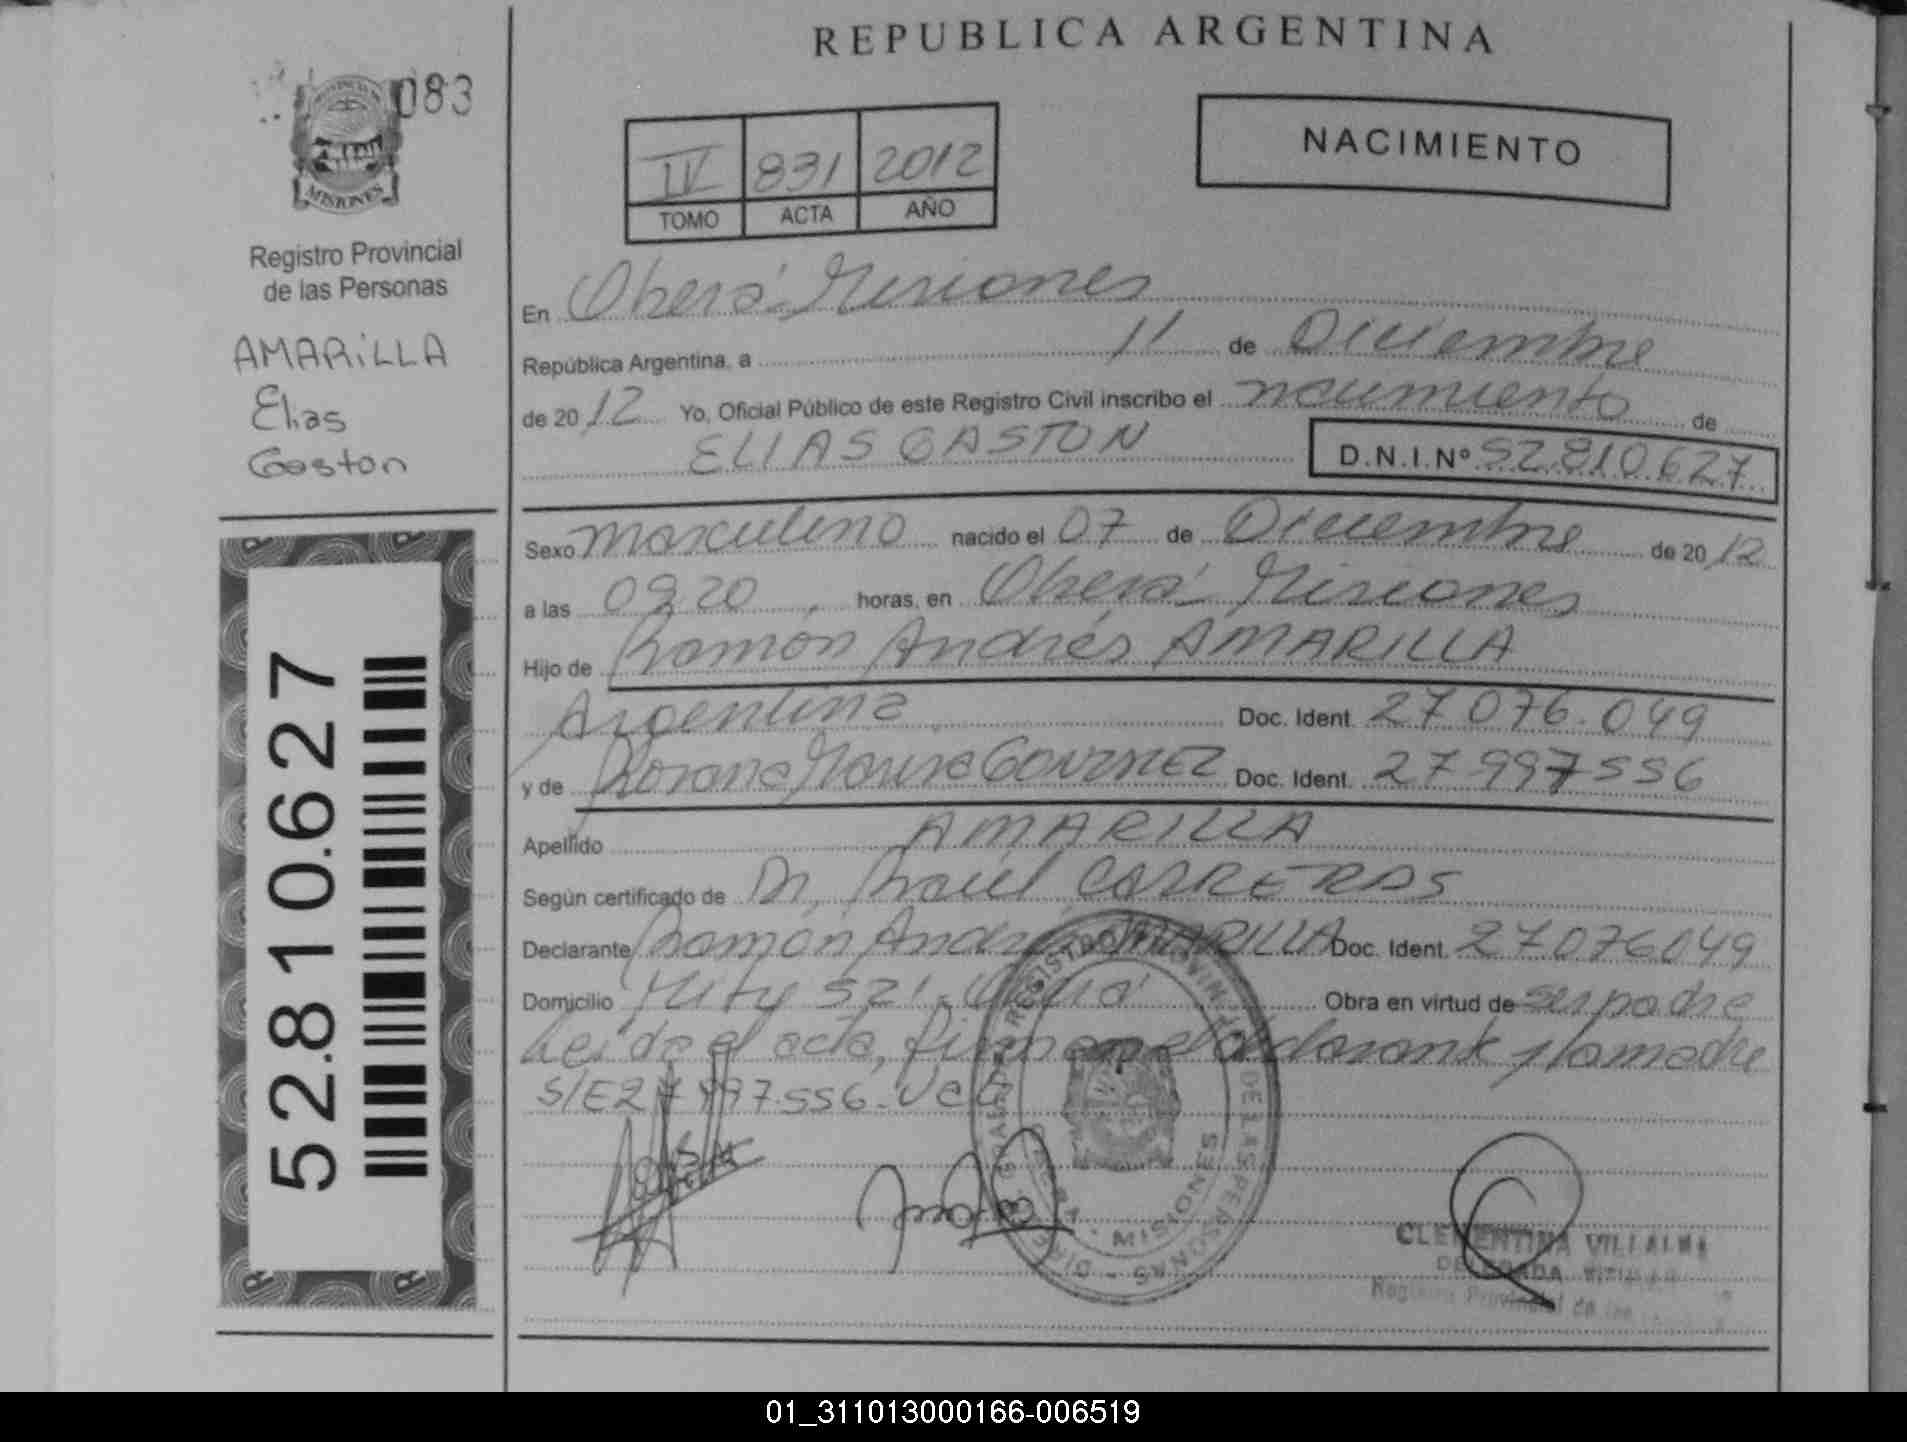 REPUBLICA ARGENTINA
083
MISIONES
Registro Provincial
de las Personas
AMARiLLA
Elias
Gaston
52.810.627
IV 831 2012
TOMO ACTA AÑO
NACIMIENTO
En Oberá Misiones
República Argentina, a 11 de Diciembre
de 2012 Yo, Oficial Público de este Registro Civil inscribo el nacimiento de
ELIAS GASTON D.N.I.Nº 52.810.627
Sexo masculino nacido el 07 de Diciembre de 2012
a las 09,20 horas, en Oberá Misiones
Hijo de Ramón Andrés AMARILLA
Argentina Doc. Ident. 27 076.049
y de Rosana Doc. Ident. 27 997556
Apellido AMARILLA
Según certificado de Dr. Raúl CARRERAS
Declarante Ramón Andrés AMARILLA Doc. Ident. 27076049
Domicilio 521 - Oberá Obra en virtud de ser padre
Leida el acta, firman el declarante y la madre
S/E 27997556. Vale
REGISTRO PROVINCIAL DE LAS PERSONAS
OBERA - MISIONES
CLEMENTINA VILLALBA
DELEGADA TITULAR
Registro Provincial de las
01_311013000166-006519